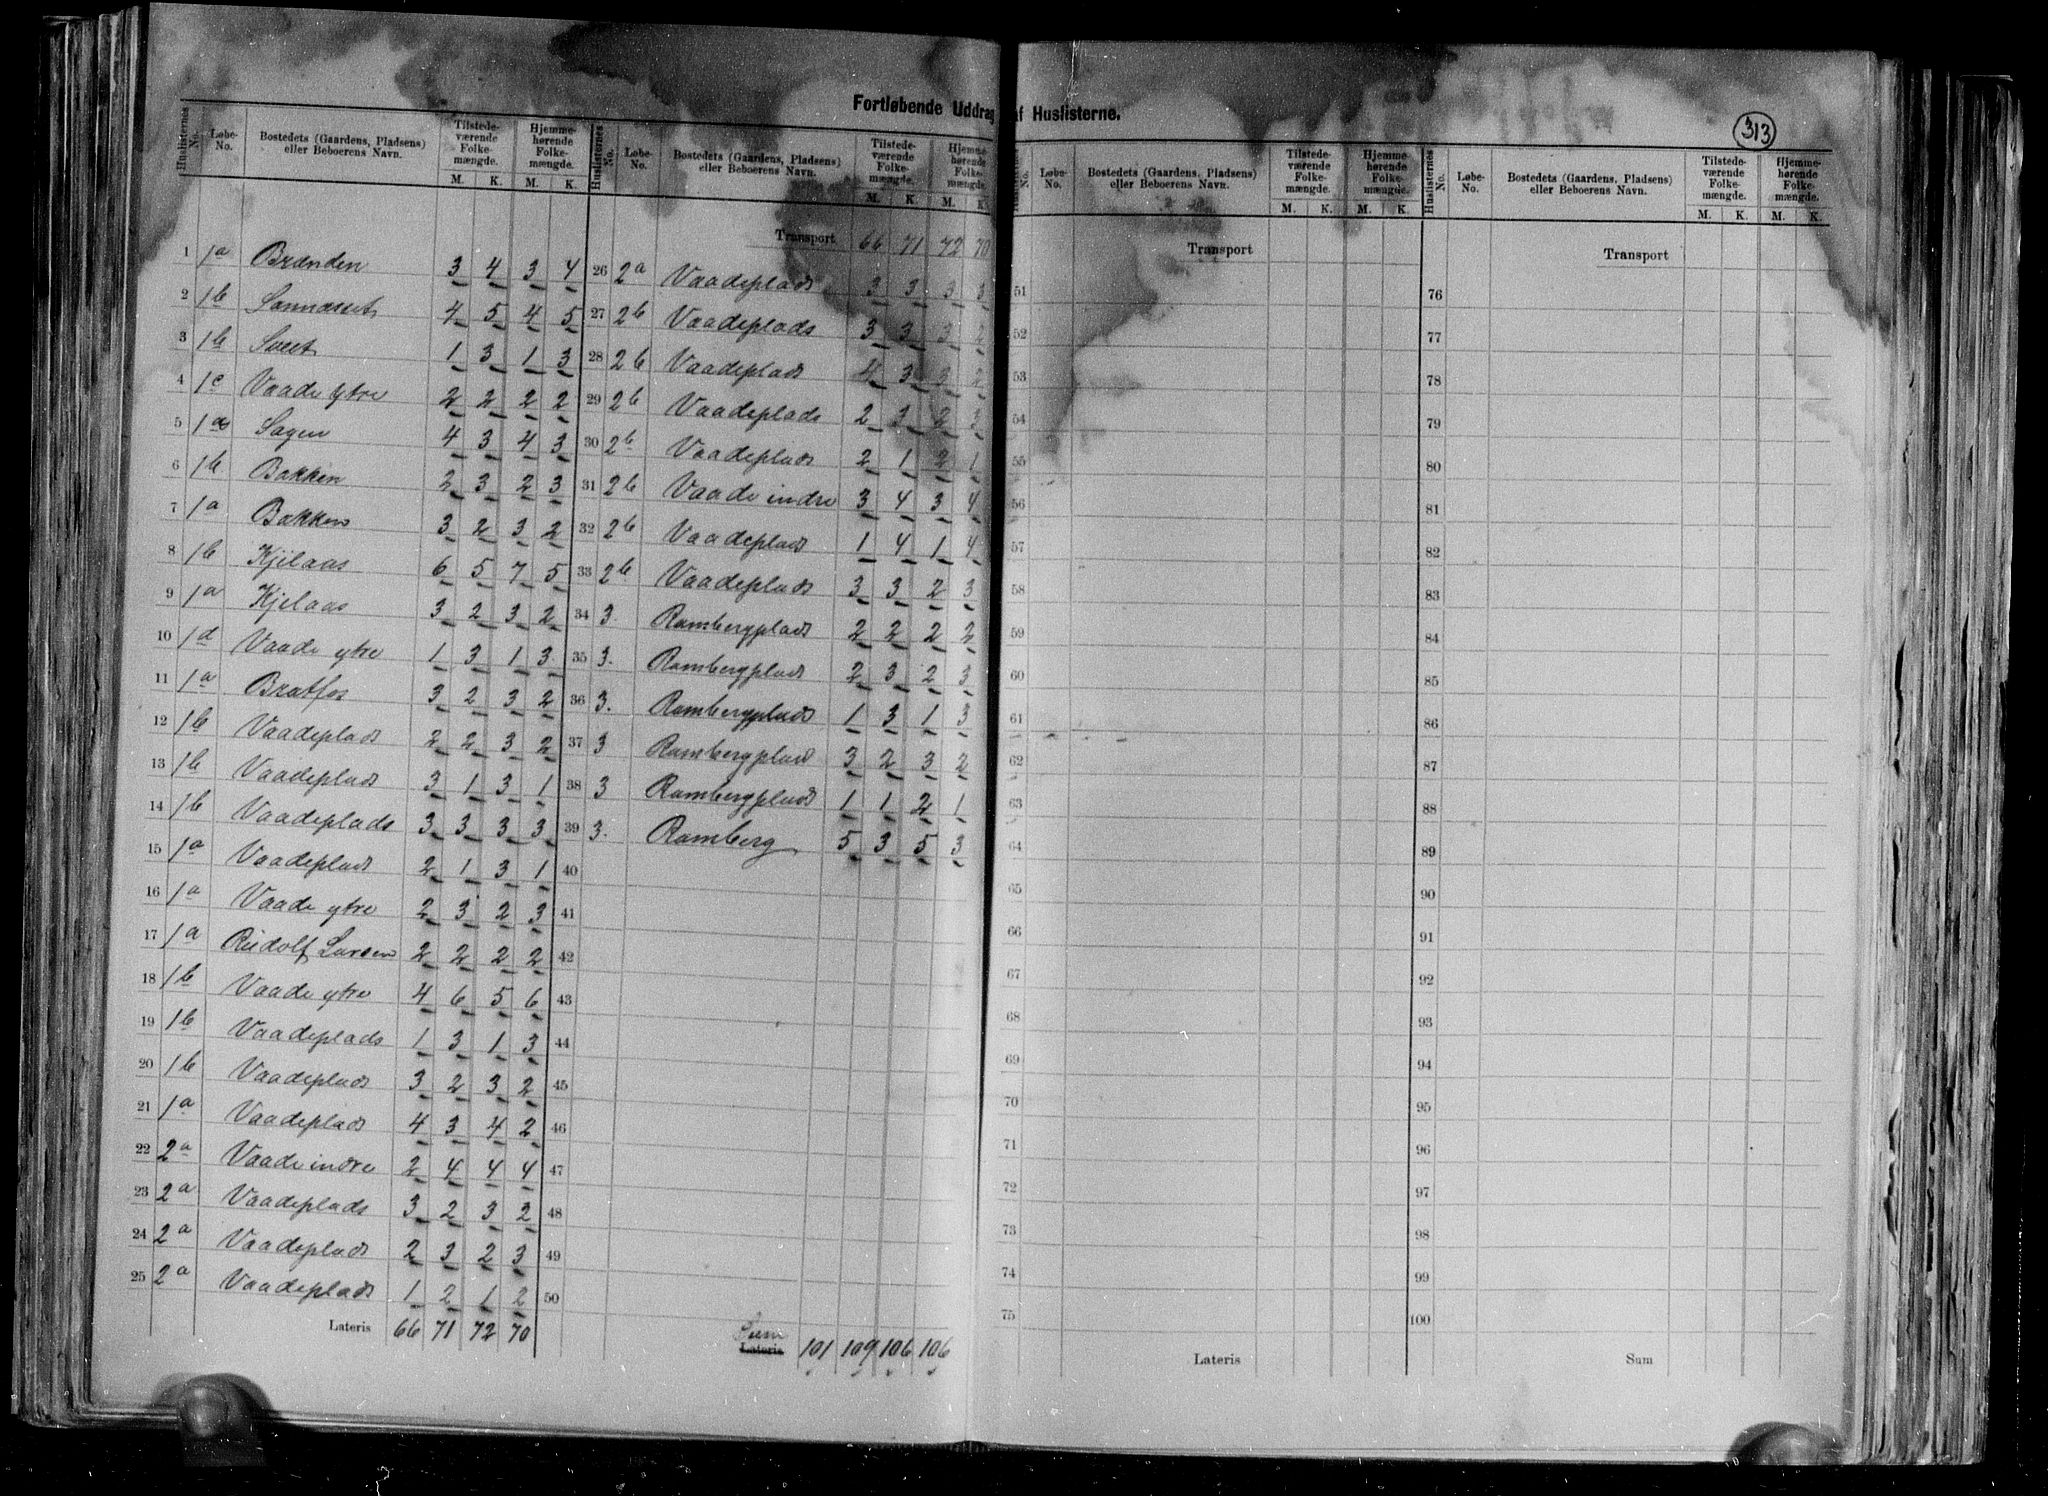 Fortløbende Uddrag af Huslisterne.
313
Huslisternes No. | Løbe-No. | Bostedets (Gaardens, Pladsens) eller Beboerens Navn. | Tilstedeværende Folkemængde. M. K. | Hjemmehørende Folkemængde. M. K.
1 1a Brænden 3 4 3 4
2 1b 4 5 4 5
3 1b 1 3 1 3
4 1c Vaade ytre 2 2 2 2
5 1a Sagen 4 3 4 3
6 1b Bakken 2 3 2 3
7 1a Bakken 3 2 3 2
8 1b Kjilaas 6 5 7 5
9 1a Kjelaas 3 2 3 2
10 1d Vaade ytre 1 3 1 3
11 1a Bratfos 3 2 3 2
12 1b Vaadeplads 2 2 3 2
13 1b Vaadeplads 3 1 3 1
14 1b Vaadeplads 3 3 3 3
15 1a Vaadeplads 2 1 3 1
16 1a Vaade ytre 2 3 2 3
17 1a Rudolf Larsen 2 2 2 2
18 1b Vaade ytre 4 6 5 6
19 1b Vaadeplads 1 3 1 3
20 1b Vaadeplads 3 2 3 2
21 1a Vaadeplads 4 3 4 2
22 2a Vaade indre 2 4 4 4
23 2a Vaadeplads 3 2 3 2
24 2a Vaadeplads 2 3 2 3
25 2a Vaadeplads 1 2 1 2
Lateris 66 71 72 70
Huslisternes No. | Løbe-No. | Bostedets (Gaardens, Pladsens) eller Beboerens Navn. | Tilstedeværende Folkemængde. M. K. | Hjemmehørende Folkemængde. M. K.
Transport 66 71 72 70
26 2a Vaadeplads 3 3 3 3
27 2b Vaadeplads 3 3 3 2
28 2b Vaadeplads 4 3 3 2
29 2b Vaadeplads 2 3 2 3
30 2b Vaadeplads 2 1 2 1
31 2b Vaade indre 3 4 3 4
32 2b Vaadeplads 1 4 1 4
33 2b Vaadeplads 3 3 2 3
34 3. Rambergplads 2 2 2 2
35 3. Rambergplads 2 3 2 3
36 3. Rambergplads 1 3 1 3
37 3 Rambergplads 3 2 3 2
38 3 Rambergplads 1 1 2 1
39 3. Ramberg 5 3 5 3
40
41
42
43
44
45
46
47
48
49
50
Sum
Lateris 101 109 106 106
Huslisternes No. | Løbe-No. | Bostedets (Gaardens, Pladsens) eller Beboerens Navn. | Tilstedeværende Folkemængde. M. K. | Hjemmehørende Folkemængde. M. K.
Transport
51
52
53
54
55
56
57
58
59
60
61
62
63
64
65
66
67
68
69
70
71
72
73
74
75
Lateris
Huslisternes No. | Løbe-No. | Bostedets (Gaardens, Pladsens) eller Beboerens Navn. | Tilstedeværende Folkemængde. M. K. | Hjemmehørende Folkemængde. M. K.
Transport
76
77
78
79
80
81
82
83
84
85
86
87
88
89
90
91
92
93
94
95
96
97
98
99
100
Sum